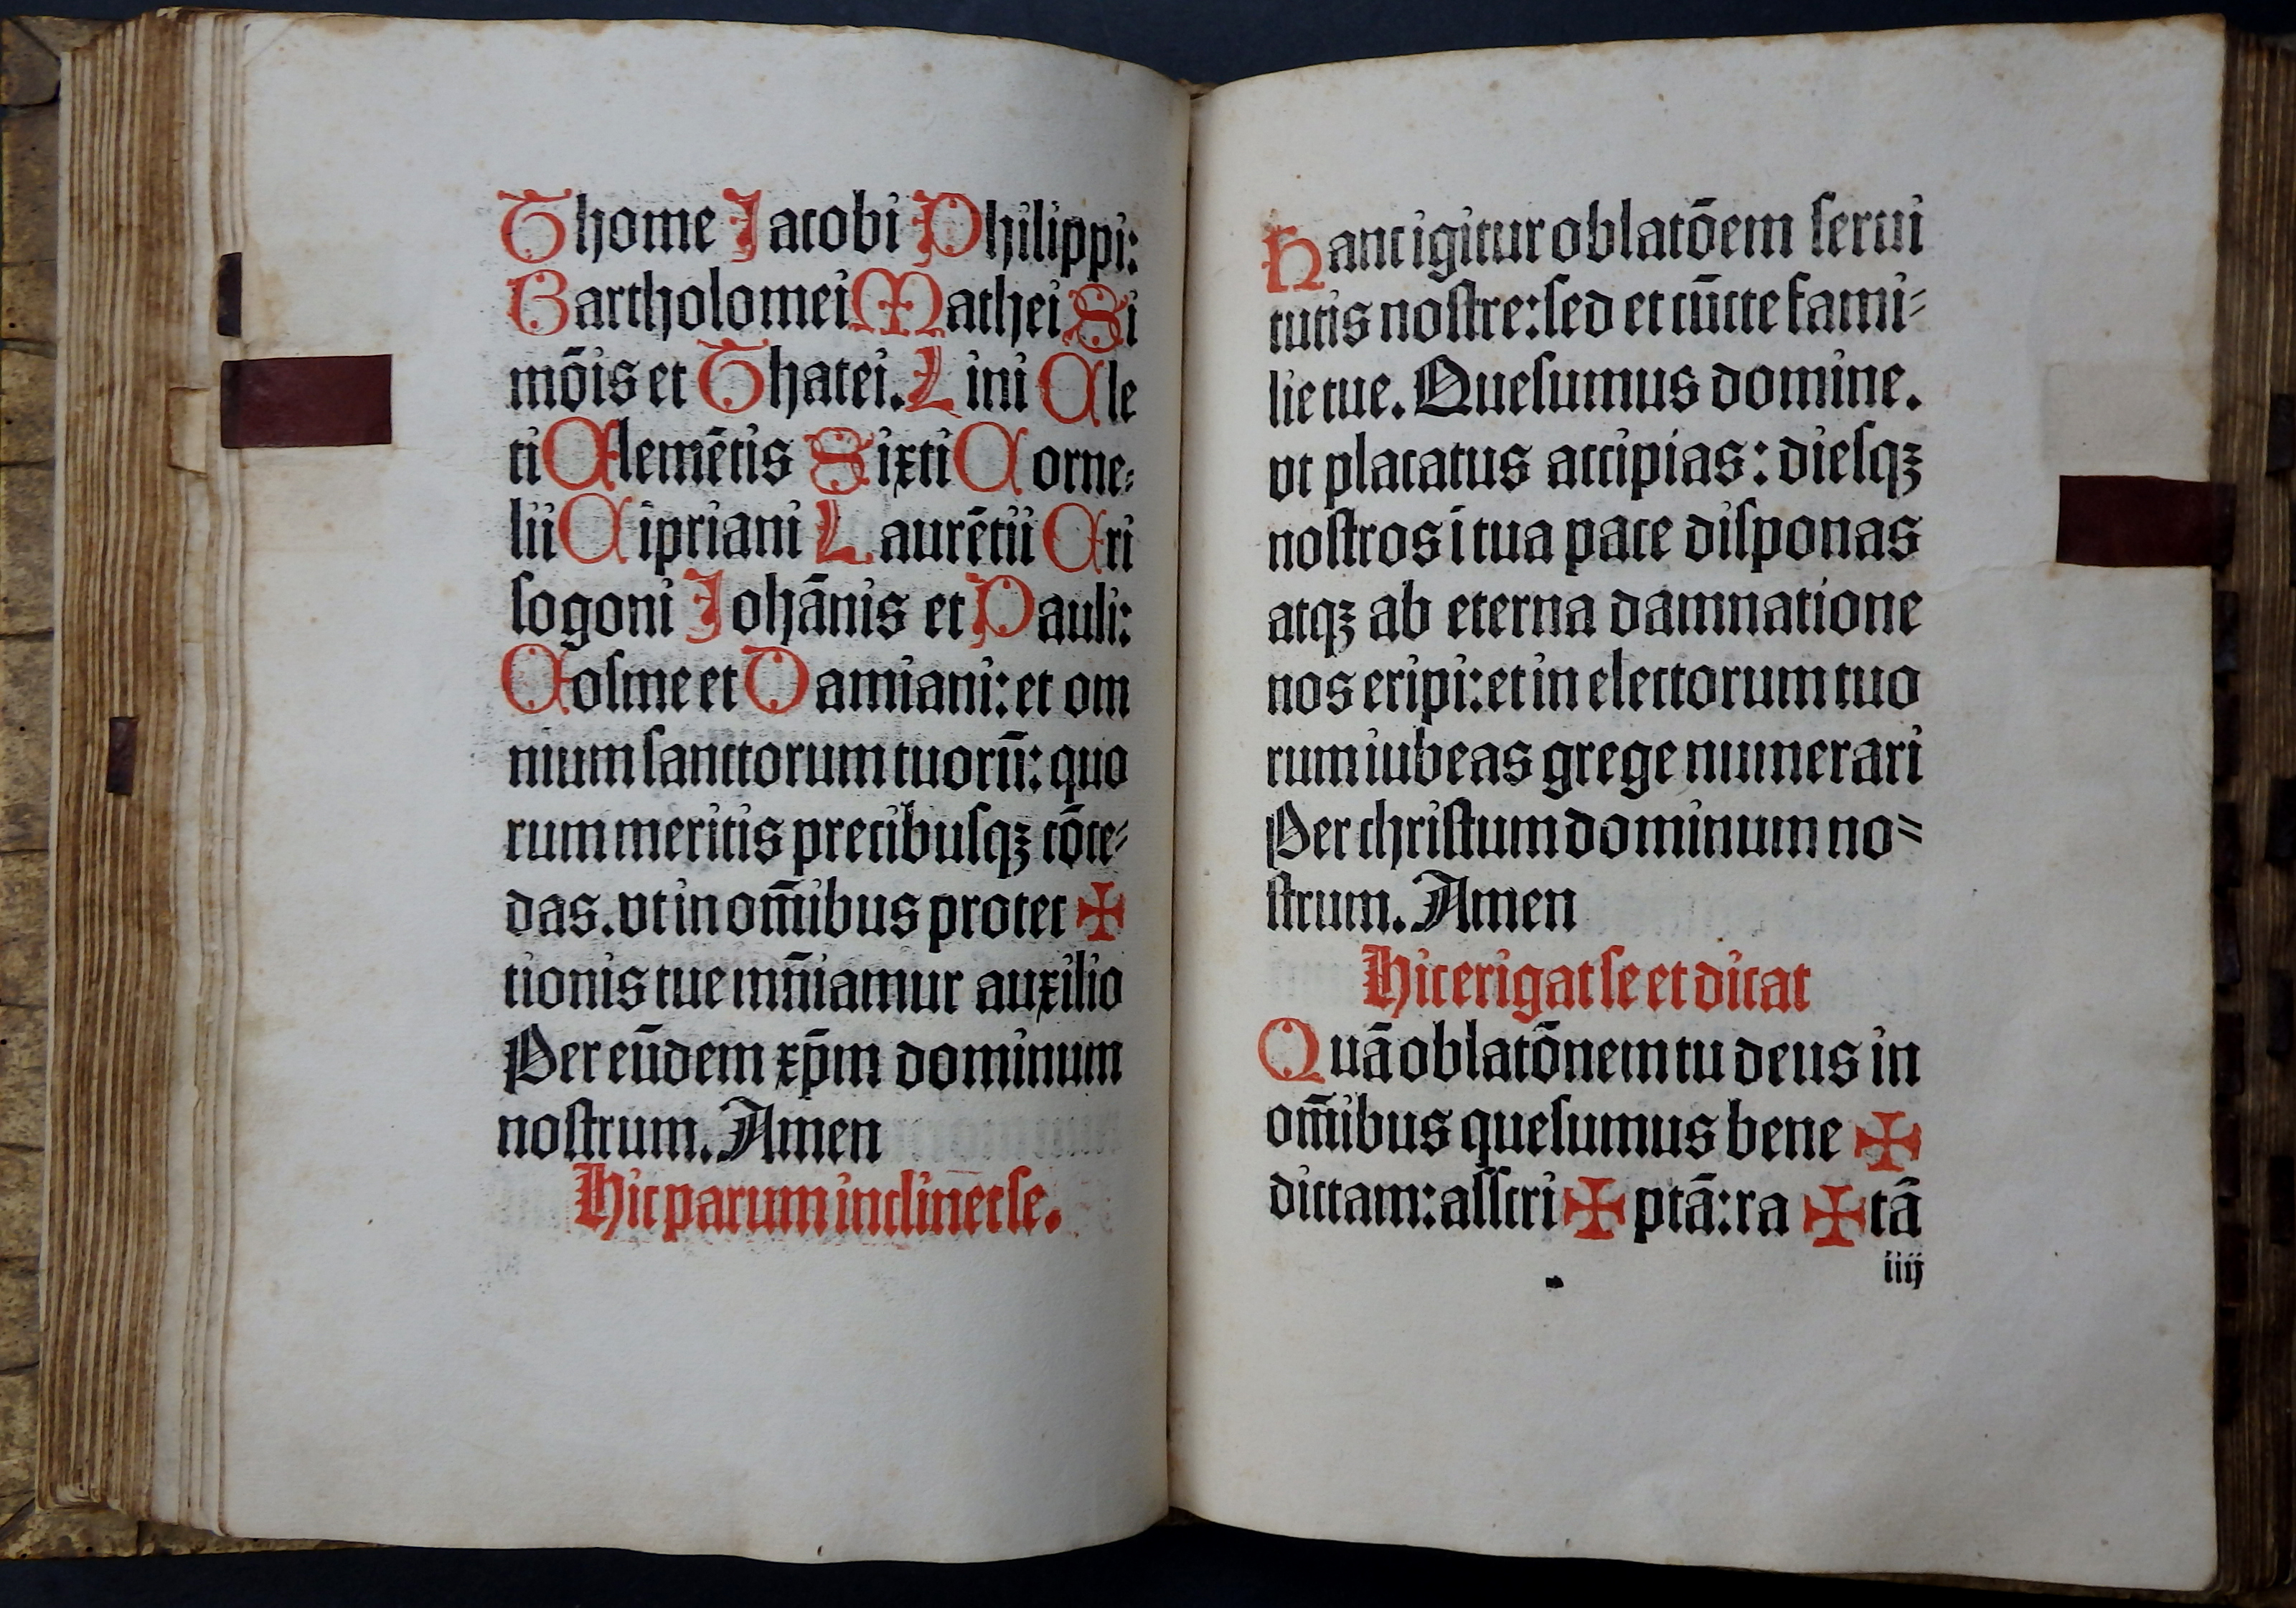 Thome Jacobi Philippi:
Bartholomei Mathei Si
mōis et Thatei. Lini Cle
ti Clemētis Sixti Corne⸗
lii Cipriani Laurētii Cri
sogoni Johānis et Pauli:
Cosme et Damiani: et om
nium sanctorum tuorū: quo
rum meritis precibusqꝫ cōce⸗
das. vt in om̄ibus protec ✠
tionis tue mūiamur auxilio
Per eūdem xp̄m dominum
nostrum. Amen
Hic parum inclinet se.
Hanc igitur oblatōem serui
tutis nostre: sed et cūcte fami⸗
lie tue. Quesumus domine.
vt placatus accipias: diesqꝫ
nostros ī tua pace disponas
atqꝫ ab eterna damnatione
nos eripi: et in electorum tuo
rum iubeas grege numerari
Per christum dominum no⸗
strum. Amen
Hic erigat se et dicat
Quā oblatōnem tu deus in
om̄ibus quesumus bene ✠
dictam: ascri ✠ ptā: ra ✠ tā
iiij